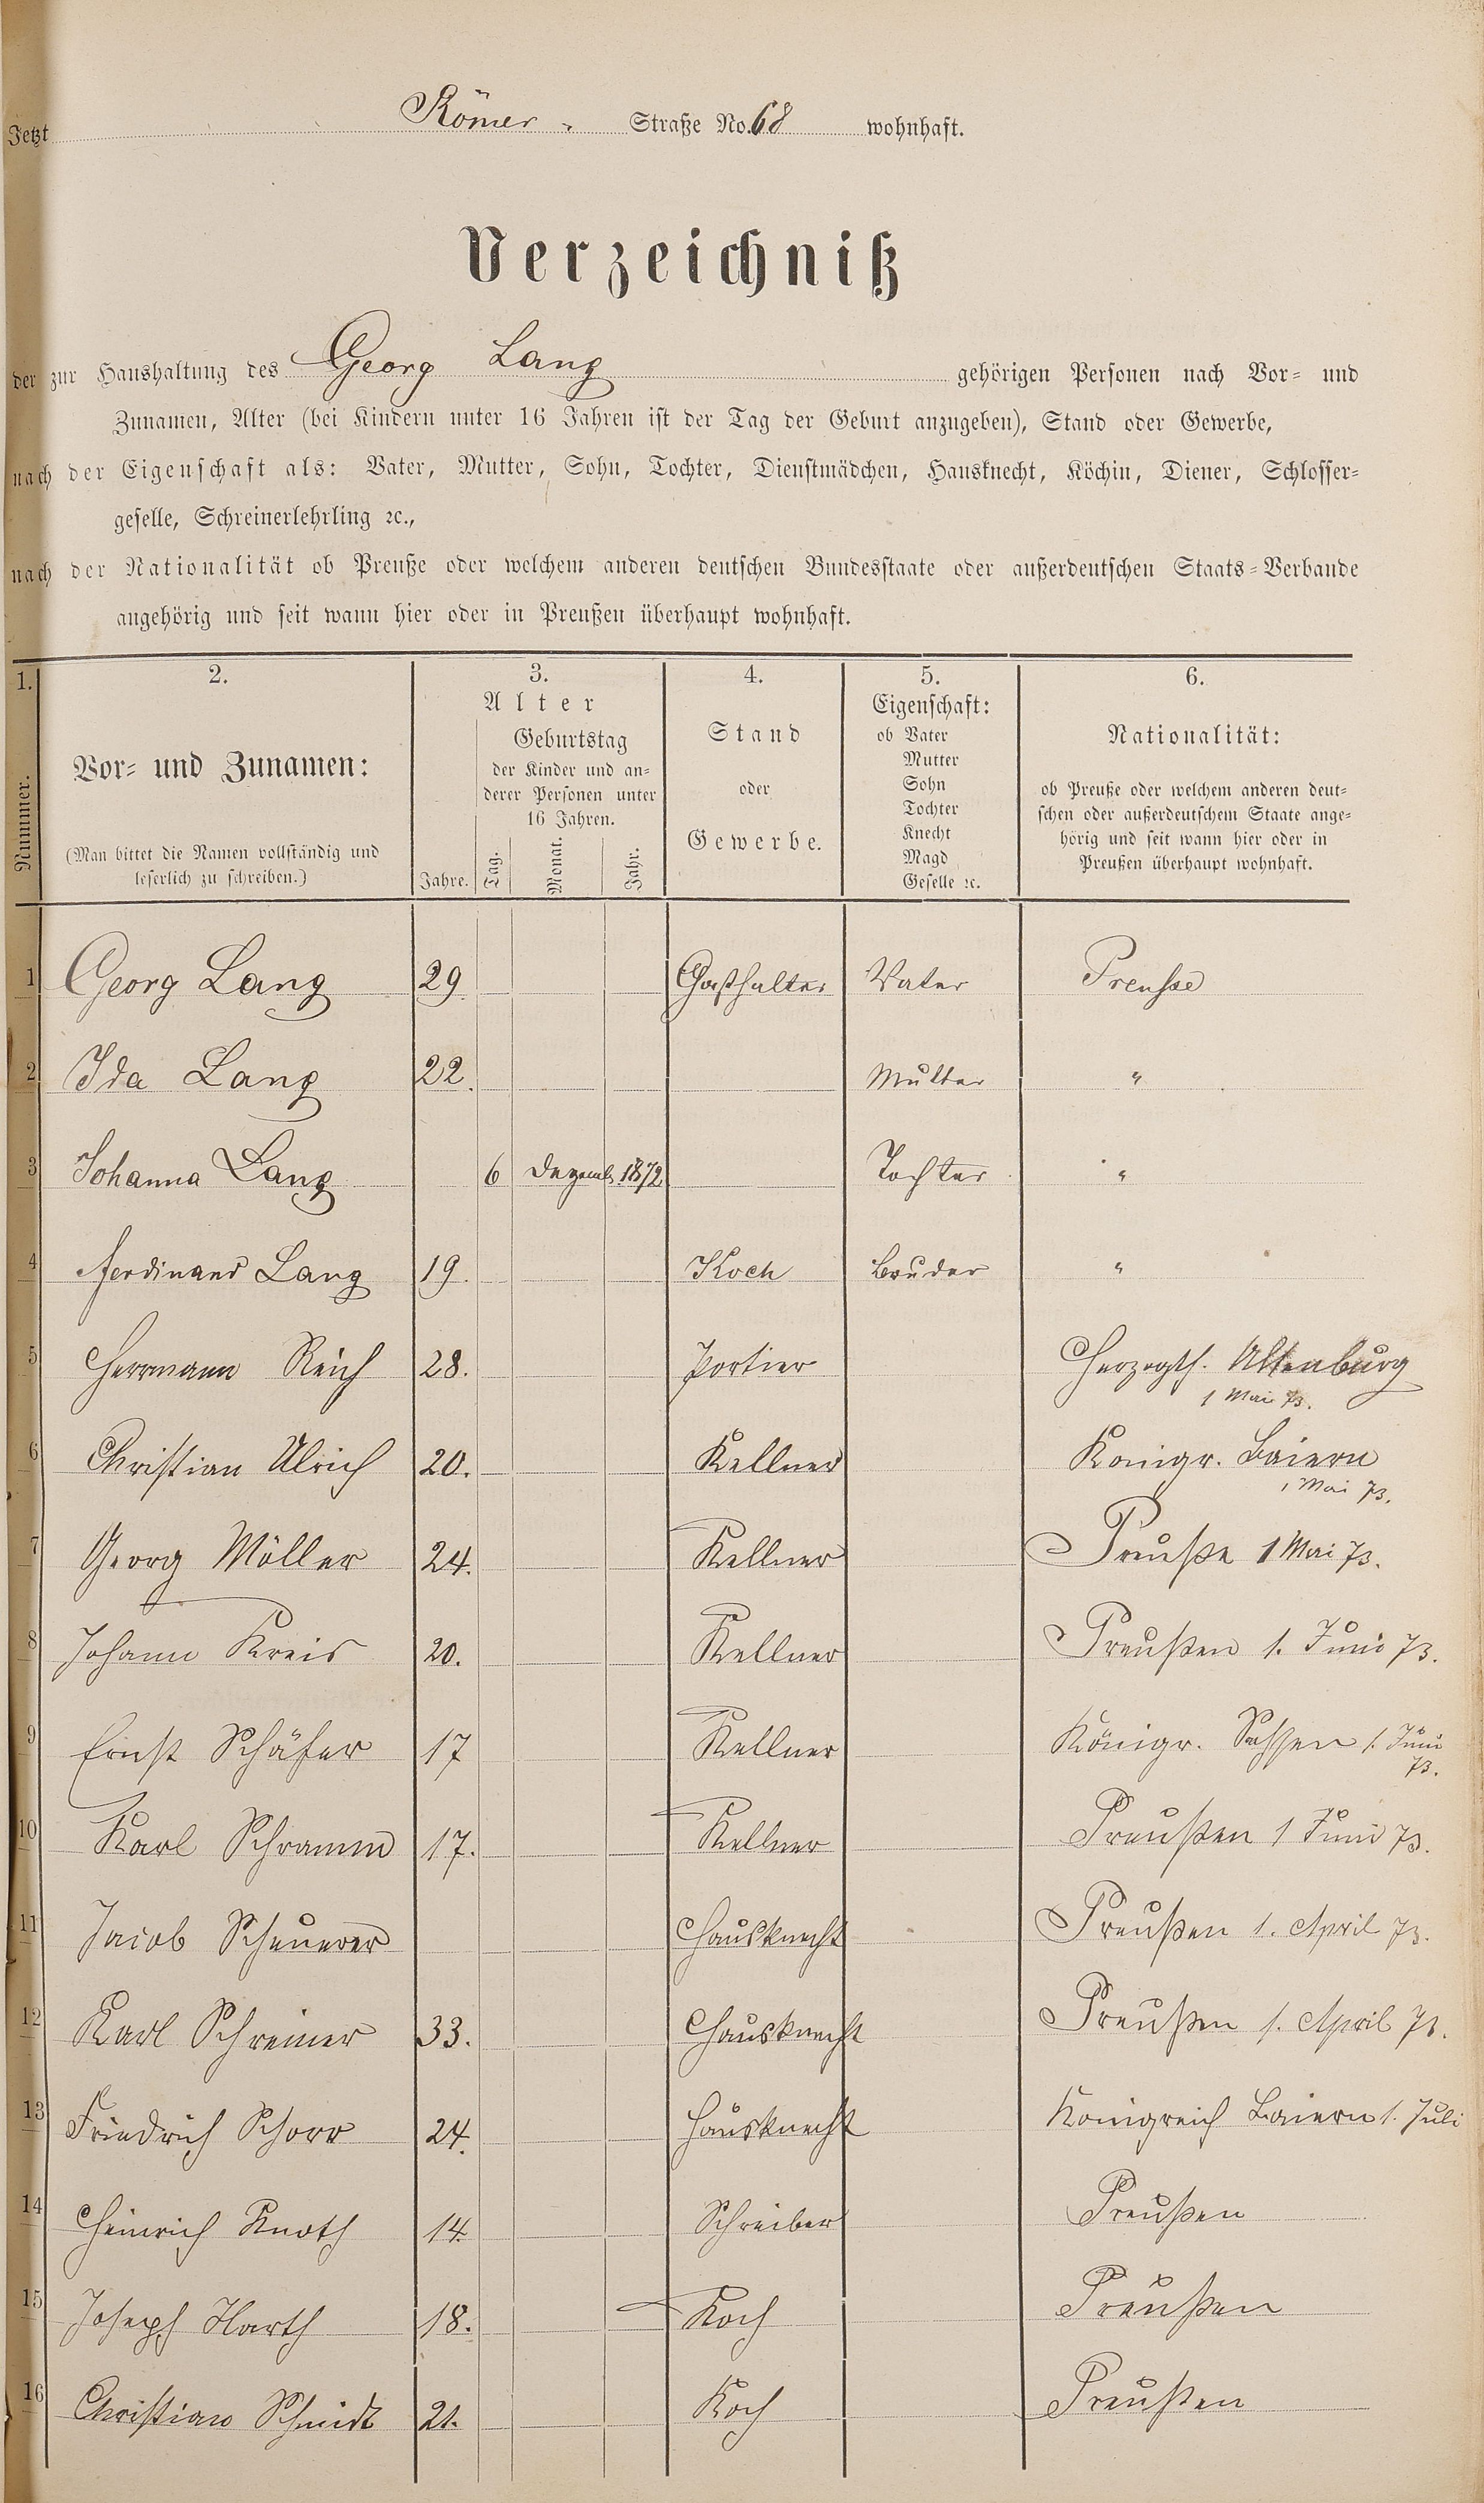 Jetzt Römer- Straße No. 68 wohnhaft.
Verzeichniß
der zur Haushaltung des Georg Lang gehörigen Personen nach Vor- und
Zunamen, Alter (bei Kindern unter 16 Jahren ist der Tag der Geburt anzugeben), Stand oder Gewerbe,
nach der Eigenschaft als: Vater, Mutter, Sohn, Tochter, Dienstmädchen, Hausknecht, Köchin, Diener, Schlosser-
geselle, Schreinerlehrling ꝛc.,
nach der Nationalität ob Preuße oder welchem anderen deutschen Bundesstaate oder außerdeutschen Staats-Verbande
angehörig und seit wann hier oder in Preußen überhaupt wohnhaft.
1. 2. 3. 4. 5. 6.
Nummer.
Vor- und Zunamen:
(Man bittet die Namen vollständig und
leserlich zu schreiben.)
Alter
Geburtstag
der Kinder und an-
derer Personen unter
16 Jahren.
Jahre. Tag. Monat. Jahr.
Stand
oder
Gewerbe.
Eigenschaft:
ob Vater
Mutter
Sohn
Tochter
Knecht
Magd
Geselle ꝛc.
Nationalität:
ob Preuße oder welchem anderen deut-
schen oder außerdeutschem Staate ange-
hörig und seit wann hier oder in
Preußen überhaupt wohnhaft.
1 Georg Lang 29 Gasthalter Vater Preusse
2 Ida Lang 22. Mutter "
3 Johanna Lang 6 Dezemb. 1872 Tochter "
4 Ferdinand Lang 19. Koch Bruder "
5 Herrmann Reich 28. Portier Herzogth. Altenburg
1 Mai 73.
6 Christian Ulrich 20. Kellner Konigr. Baiern
1 Mai 73.
7 Georg Möller 24. Kellner Preuße 1 Mai 73.
8 Johann Kreis 20. Kellner Preußen 1. Juni 73.
9 Ernst Schäfer 17 Kellner Königr. Sachsen 1. Juni
73.
10 Karl Schramm 17. Kellner Preußen 1 Juni 73.
11 Jacob Scheuerer Hausknecht Preußen 1. April 73.
12 Karl Schreiner 33. Hausknecht Preußen 1. April 73.
13 Friedrich Schorr 24. Hausknecht Konigreich Baiern 1. Juli
14 Heinrich Knoth 14. Schreiber Preußen
15 Joseph Harth 18. Koch Preußen
16 Christian Schmidt 21. Koch Preußen